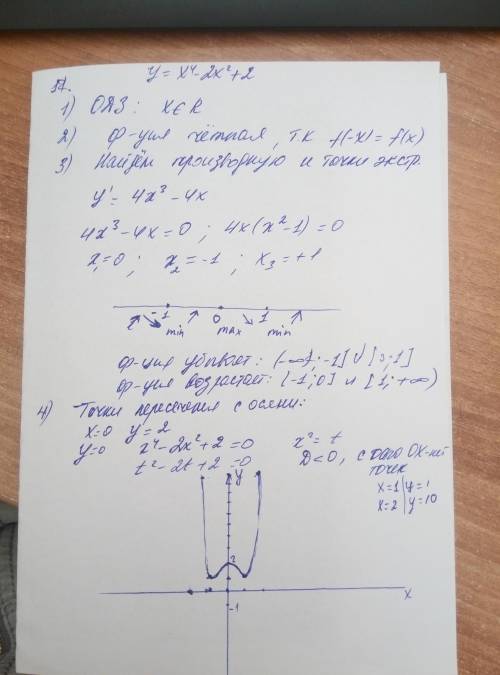 y = x⁴ - 2x² + 2
1) ОДЗ : x ∈ R
2) ф-ция чётная, т.к f(-x) = f(x)
3) Найдём производную и точки экстр.
y' = 4x³ - 4x
4x³ - 4x = 0 ; 4x(x² - 1) = 0
x₁ = 0 ; x₂ = -1 ; x₃ = +1
-1 0 1
min max min
ф-ция убывает : (-∞; -1] ∪ [0; 1]
ф-ция возрастает: [-1; 0] и [1; +∞)
4) Точки пересечения с осями:
x=0 y=2
y=0 x⁴ - 2x² + 2 = 0 x² = t
t² - 2t + 2 = 0 D < 0, с осью OX-нет точек
x=1 | y=1
x=2 | y=10
y
2
x
-1